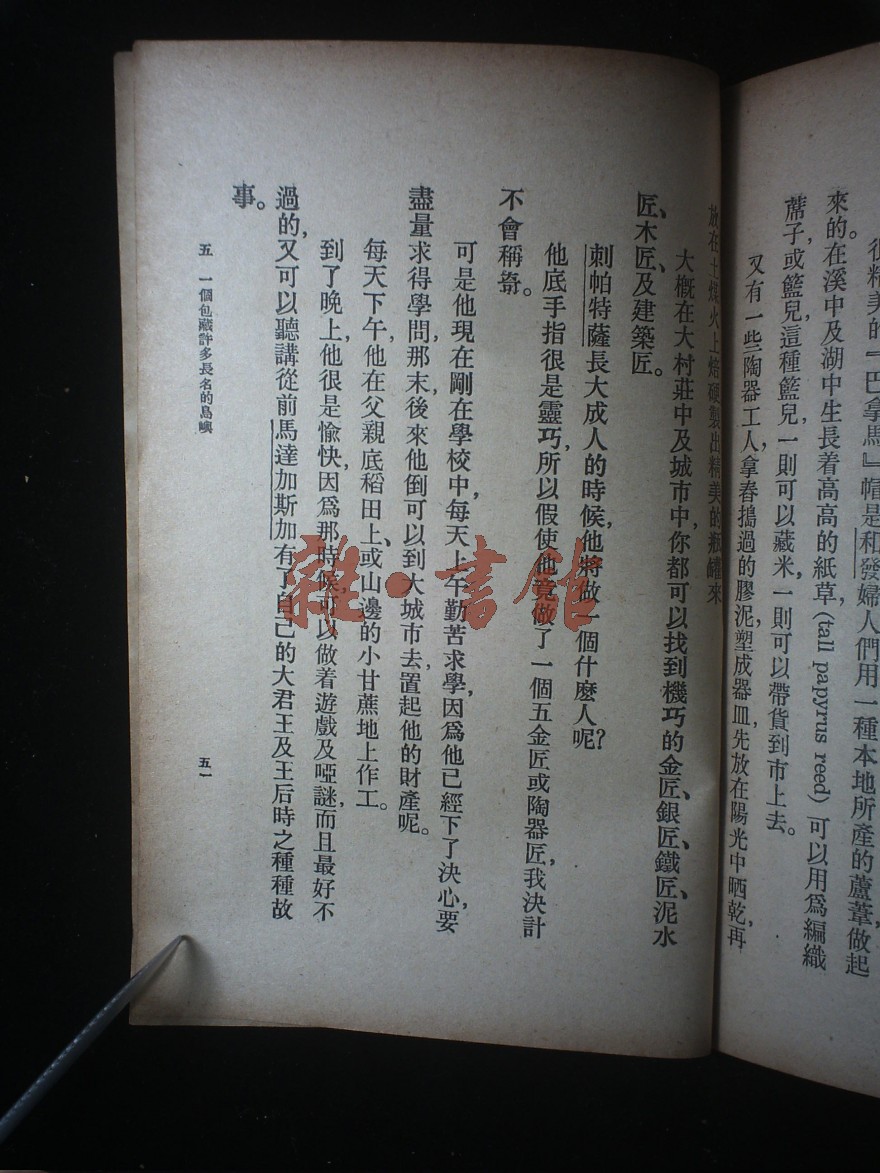 很精美的『巴拿馬』帽是和發婦人們用一種本地所產的蘆葦做起
來的。在溪中及湖中生長着高高的紙草(tall papyrus reed)可以用爲編織
蓆子或籃兒,這種籃兒一則可以藏米,一則可以帶貨到市上去。
又有一些陶器工人,拿舂搗過的膠泥塑成器皿,先放在陽光中晒乾,再
放在土煤火上焙硬製出精美的瓶罐來
大概在大村莊中及城市中,你都可以找到機巧的金匠、銀匠、鐵匠、泥水
匠、木匠、及建築匠。
刺帕特薩長大成人的時候,他將做一個什麽人呢?
他底手指很是靈巧,所以假使他竟做了一個五金匠或陶器匠,我決計
不會稱奇。
可是他現在剛在學校中,每天上午勤苦求學,因爲他已經下了決心,要
盡量求得學問,那末後來他倒可以到大城市去,置起他的財產呢。
每天下午,他在父親底稻田上、或山邊的小甘蔗地上作工。
到了晚上,他很是愉快,因爲那時候可以做着遊戲及啞謎,而且最好不
過的,又可以聽講從前馬達加斯加有了自己的大君王及王后時之種種故
事。
五 一個包藏許多長名的島嶼
五一
雜·書館